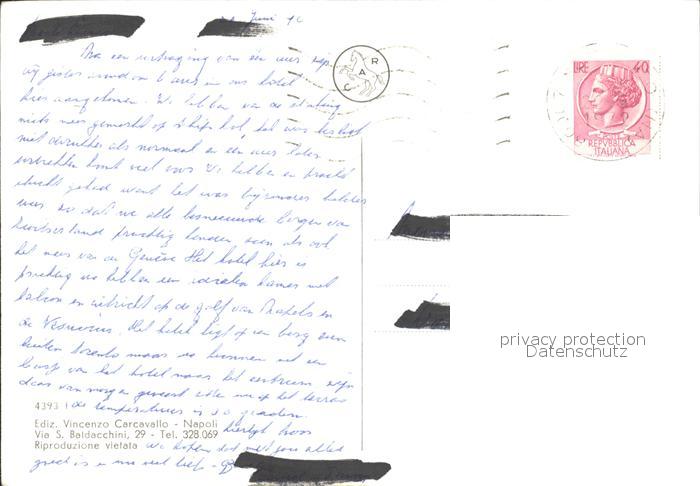 Juni
Na een vertraging van één uur zijn
wij gisteren avond om uur in ons hotel
hier aangekomen. We hebben van de staking
niets meer gemerkt op Schiphol, het was beslist
niet drukker als normaal en één uur later
vertrekken komt veel voor. We hebben een pracht
vlucht gehad want het was bijzonder helder
weer zo dat we alle besneeuwde bergen van
Zwitserland prachtig konden zien als ook
het meer van Genève. Het hotel hier is
prachtig we hebben een kamer met
balcon en uitzicht op de golf van Napels en
de Vesuvius. Het hotel ligt op een berg even
buiten Sorrento maar we kunnen met een
busje van het hotel naar het centrum zijn
daar van morgen geweest zitten nu op het terras
de temperatuur is 30 graden.
heerlijk hoor
we hopen dat met jou alles
goed is en nu veel liefs
4393
Ediz. Vincenzo Carcavallo - Napoli
Via S. Baldacchini, 29 - Tel. 328.069
Riproduzione vietata
C A R
LIRE 40
REPVBBLICA
ITALIANA
privacy protection
Datenschutz